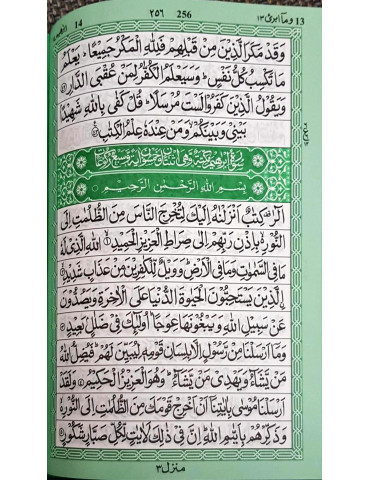 13 وما ابرئ ١٣ 256 ٢٥٦ 14
وَقَدْ مَكَرَ الَّذِيْنَ مِنْ قَبْلِهِمْ فَلِلّٰهِ الْمَكْرُ جَمِيْعًا ؕ يَعْلَمُ
مَا تَكْسِبُ كُلُّ نَفْسٍ ؕ وَسَيَعْلَمُ الْكُفّٰرُ لِمَنْ عُقْبَى الدَّارِ
وَيَقُوْلُ الَّذِيْنَ كَفَرُوْا لَسْتَ مُرْسَلًا ؕ قُلْ كَفٰى بِاللّٰهِ شَهِيْدًۢا
بَيْنِيْ وَبَيْنَكُمْ ۙ وَمَنْ عِنْدَهٗ عِلْمُ الْكِتٰبِ
بِسْمِ اللّٰهِ الرَّحْمٰنِ الرَّحِيْمِ
الٓرٰ ۫ كِتٰبٌ اَنْزَلْنٰهُ اِلَيْكَ لِتُخْرِجَ النَّاسَ مِنَ الظُّلُمٰتِ اِلَى
النُّوْرِ ۙ بِاِذْنِ رَبِّهِمْ اِلٰى صِرَاطِ الْعَزِيْزِ الْحَمِيْدِ ۙ اللّٰهِ الَّذِيْ لَهٗ
مَا فِي السَّمٰوٰتِ وَمَا فِي الْاَرْضِ ؕ وَوَيْلٌ لِّلْكٰفِرِيْنَ مِنْ عَذَابٍ شَدِيْدِ
ۙ الَّذِيْنَ يَسْتَحِبُّوْنَ الْحَيٰوةَ الدُّنْيَا عَلَى الْاٰخِرَةِ وَيَصُدُّوْنَ
عَنْ سَبِيْلِ اللّٰهِ وَيَبْغُوْنَهَا عِوَجًا ؕ اُولٰٓئِكَ فِيْ ضَلٰلٍۭ بَعِيْدٍ
وَمَآ اَرْسَلْنَا مِنْ رَّسُوْلٍ اِلَّا بِلِسَانِ قَوْمِهٖ لِيُبَيِّنَ لَهُمْ ؕ فَيُضِلُّ اللّٰهُ
مَنْ يَّشَآءُ وَيَهْدِيْ مَنْ يَّشَآءُ ؕ وَهُوَ الْعَزِيْزُ الْحَكِيْمُ وَلَقَدْ
اَرْسَلْنَا مُوْسٰى بِاٰيٰتِنَآ اَنْ اَخْرِجْ قَوْمَكَ مِنَ الظُّلُمٰتِ اِلَى النُّوْرِ ۙ
وَذَكِّرْهُمْ بِاَيّٰىمِ اللّٰهِ ؕ اِنَّ فِيْ ذٰلِكَ لَاٰيٰتٍ لِّكُلِّ صَبَّارٍ شَكُوْرٍ
منزل ٣